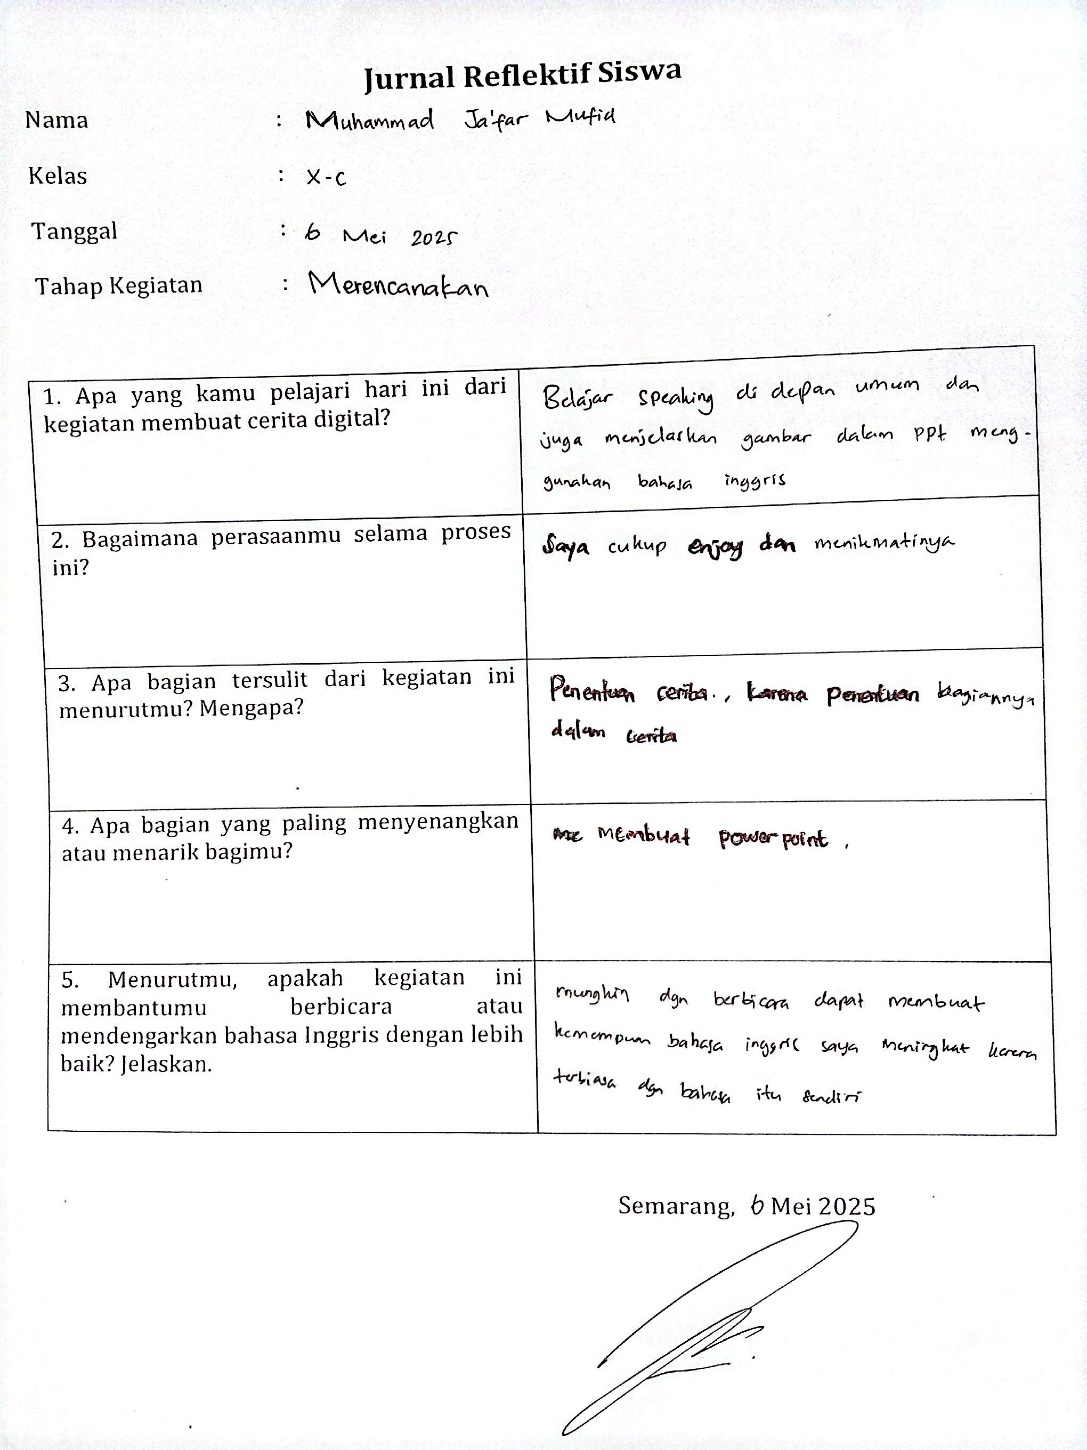 Jurnal Reflektif Siswa
Nama : Muhammad Ja'far Mufid
Kelas : X-C
Tanggal : 6 Mei 2025
Tahap Kegiatan : Merencanakan
1. Apa yang kamu pelajari hari ini dari
kegiatan membuat cerita digital?
Belajar speaking di depan umum dan
juga menjelaskan gambar dalam PPt meng-
gunakan bahasa inggris
2. Bagaimana perasaanmu selama proses
ini?
Saya cukup enjoy dan menikmatinya
3. Apa bagian tersulit dari kegiatan ini
menurutmu? Mengapa?
Penentuan cerita., karena penentuan bagiannya
dalam cerita
4. Apa bagian yang paling menyenangkan
atau menarik bagimu?
membuat power point.
5. Menurutmu, apakah kegiatan ini
membantumu berbicara atau
mendengarkan bahasa Inggris dengan lebih
baik? Jelaskan.
mungkin dgn berbicara dapat membuat
kemempuan bahasa inggris saya meningkat karena
terbiasa dgn bahasa itu sendiri
Semarang, 6 Mei 2025